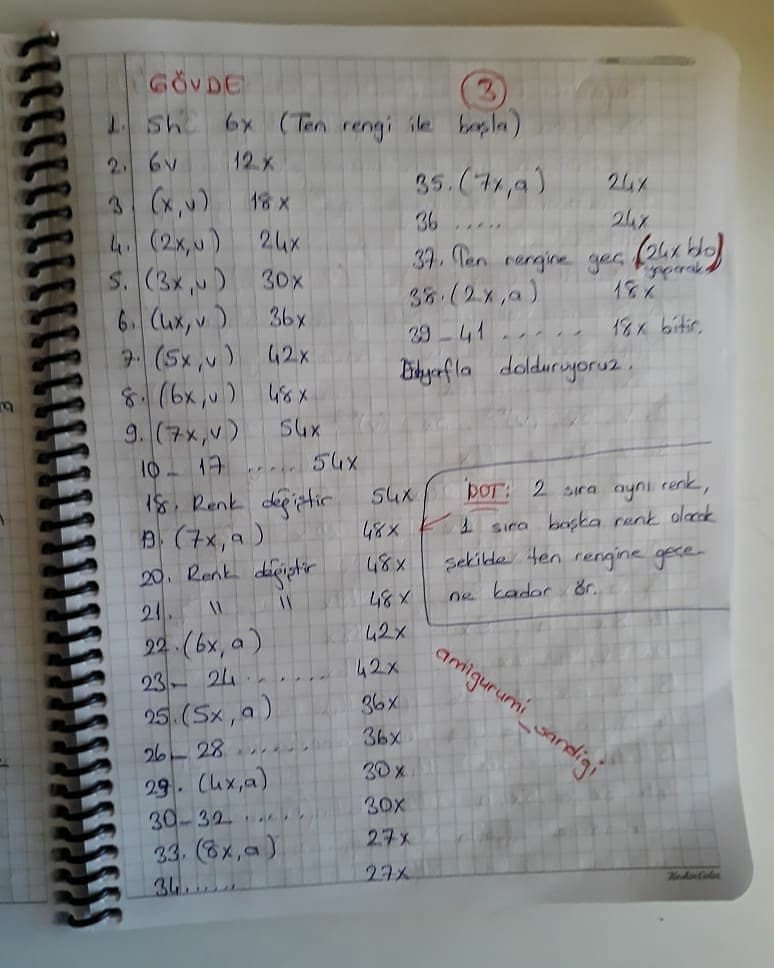 GÖVDE
3
1. Sh 6x (Ten rengi ile başla)
2. 6v 12x
3. (x,v) 18x
4. (2x,v) 24x
5. (3x,v) 30x
6. (4x,v) 36x
7. (5x,v) 42x
8. (6x,v) 48x
9. (7x,v) 54x
10 - 17 ..... 54x
18. Renk değiştir 54x
19. (7x,a) 48x
20. Renk değiştir 48x
21. " " 48x
22. (6x,a) 42x
23 - 24 ....... 42x
25. (5x,a) 36x
26 - 28 ...... 36x
29. (4x,a) 30x
30 - 32 ..... 30x
33. (8x,a) 27x
34 ...... 27x
35. (7x,a) 24x
36 ..... 24x
37. Ten rengine geç (24x blo)
yaparak
38. (2x,a) 18x
39 - 41 ..... 18x bitir.
Elyafla dolduruyoruz.
DOT: 2 sıra aynı renk,
1 sıra başka renk olacak
şekilde ten rengine geçe-
ne kadar ör.
amigurumi_sandigi
KeskinColor